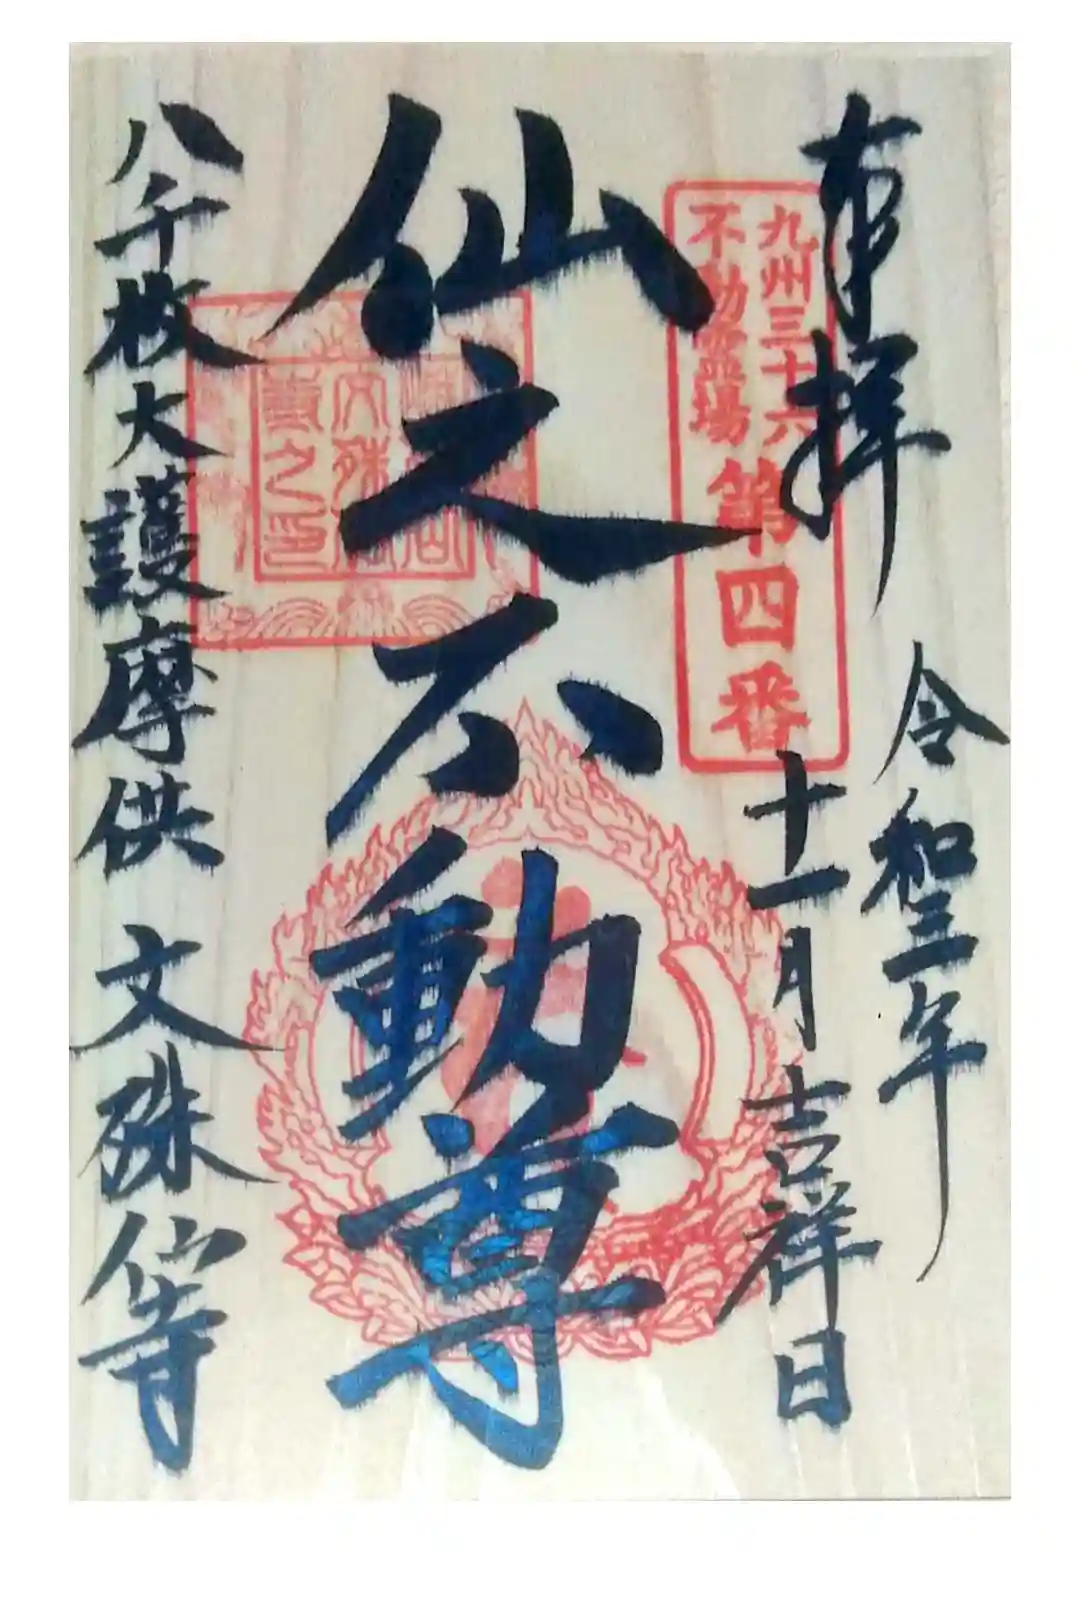 奉拝
令和三年
十一月吉祥日
九州三十六
不動霊場
第四番
仙之不動尊
文殊
之印
八千枚大護摩供 文殊仙寺